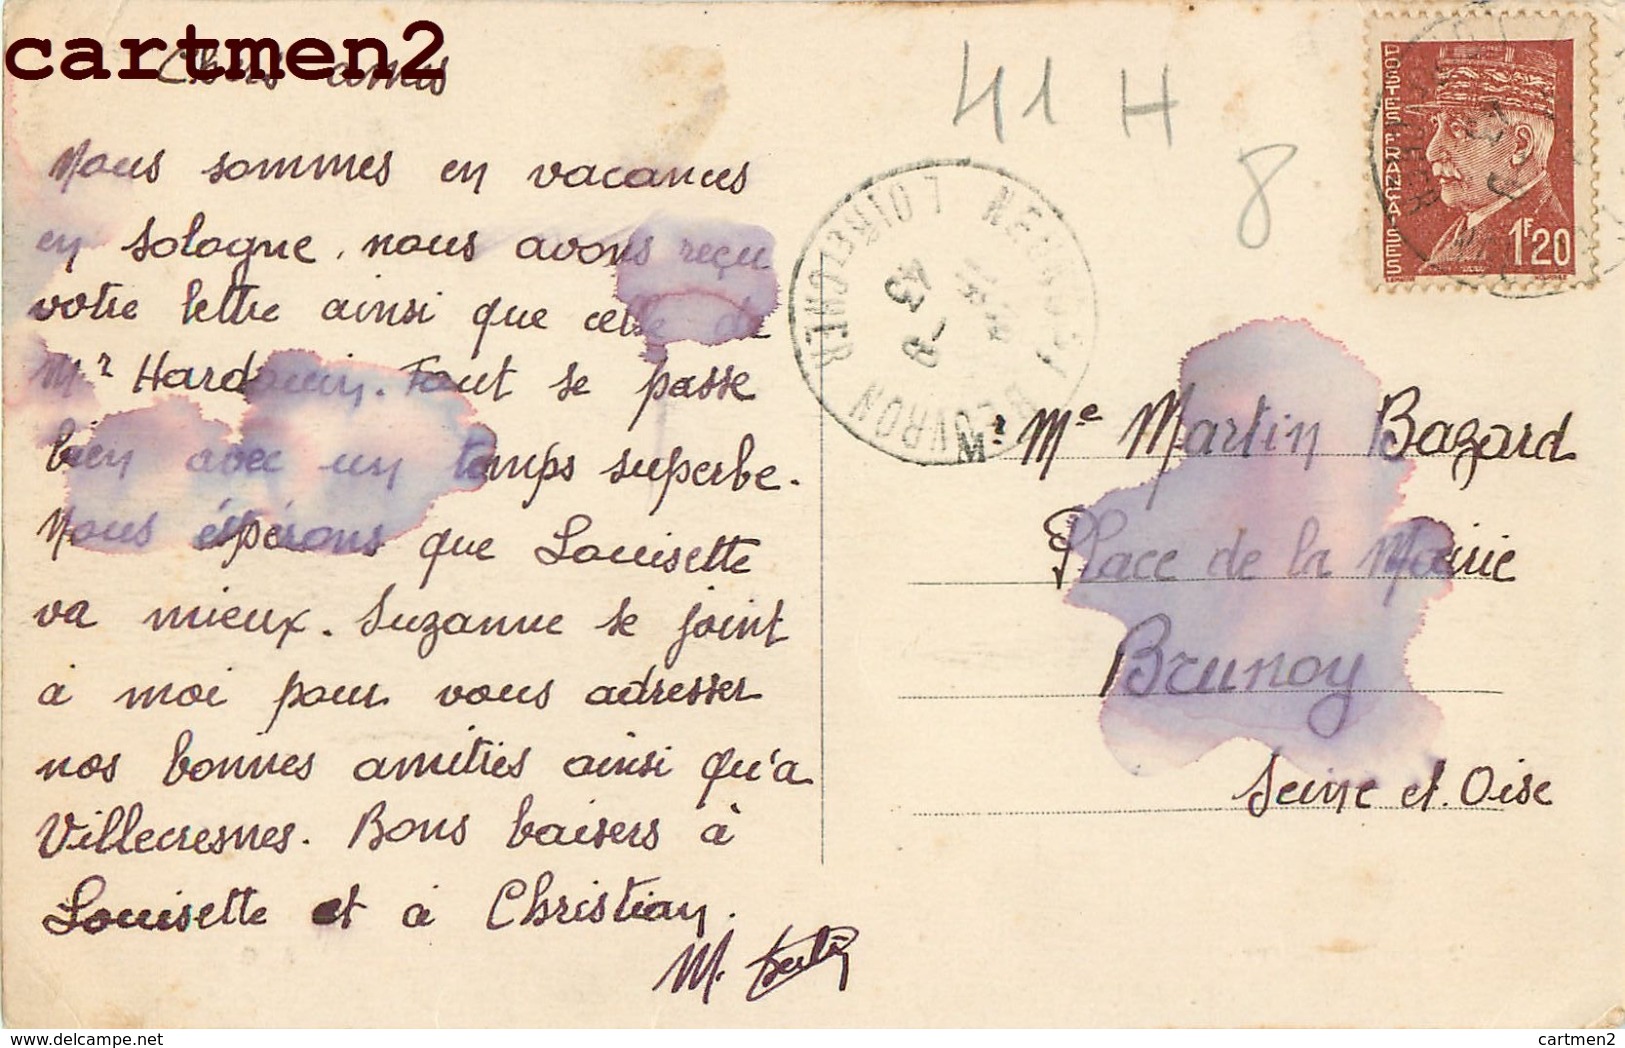 cartmen2
Chers amis
Nous sommes en vacances
en Sologne, nous avons reçu
votre lettre ainsi que celle de
Mr Hardouin. Tout se passe
bien avec un temps superbe.
Nous éspérons que Louisette
va mieux. Suzanne se joint
à moi pour vous adresser
nos bonnes amitiés ainsi qu'a
Villecresnes. Bons baisers à
Louisette et à Christian.
M.
41 H
8
POSTES FRANÇAISES
1F20
NEUNG S/ BEUVRON
LOIR ET CHER
8
43
Mr Me Martin Bazard
Place de la Mairie
Brunoy
Seine et Oise
delcampe.net
cartmen2